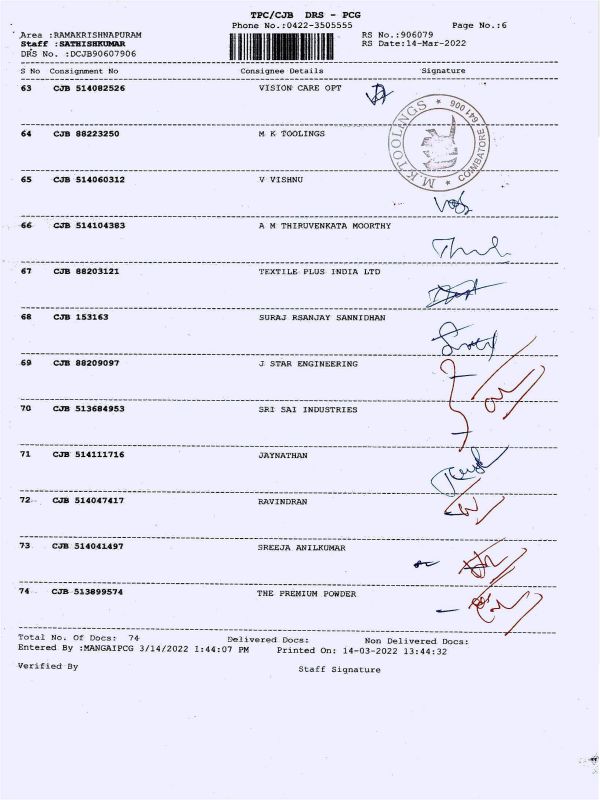 TPC/CJB DRS - PCG
Phone No.:0422-3505555 Page No.:6
Area :RAMAKRISHNAPURAM RS No.:906079
Staff :SATHISHKUMAR RS Date:14-Mar-2022
DRS No. :DCJB90607906
S No Consignment No Consignee Details Signature
63 CJB 514082526 VISION CARE OPT
64 CJB 88223250 M K TOOLINGS
M.K TOOLINGS * 641 006 * COIMBATORE
65 CJB 514060312 V VISHNU
66 CJB 514104383 A M THIRUVENKATA MOORTHY
67 CJB 88203121 TEXTILE PLUS INDIA LTD
68 CJB 153163 SURAJ RSANJAY SANNIDHAN
69 CJB 88209097 J STAR ENGINEERING
70 CJB 513684953 SRI SAI INDUSTRIES
71 CJB 514111716 JAYNATHAN
72 CJB 514047417 RAVINDRAN
73 CJB 514041497 SREEJA ANILKUMAR
74 CJB 513899574 THE PREMIUM POWDER
Total No. Of Docs: 74 Delivered Docs: Non Delivered Docs:
Entered By :MANGAIPCG 3/14/2022 1:44:07 PM Printed On: 14-03-2022 13:44:32
Verified By Staff Signature